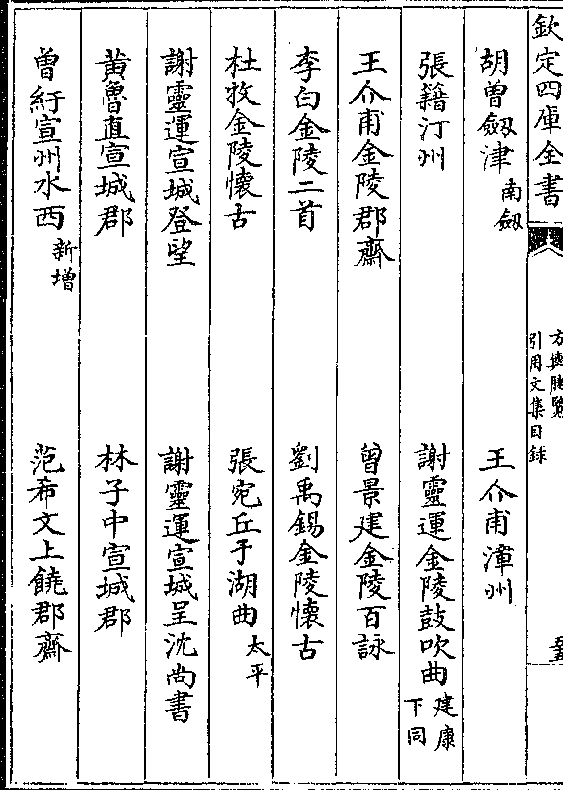 欽定四庫全書
方輿勝覽
引用文集目録
胡曾劔津南劔
王介甫漳州
張籍汀州
謝靈運金陵鼓吹曲建康下同
王介甫金陵郡齋
曾景建金陵百詠
李白金陵二首
劉禹錫金陵懐古
杜牧金陵懷古
張宛丘于湖曲太平
謝靈運宣城登望
謝靈運宣城呈沈尚書
黄魯直宣城郡
林子中宣城郡
曾紆宣州水西新增
范希文上饒郡齋